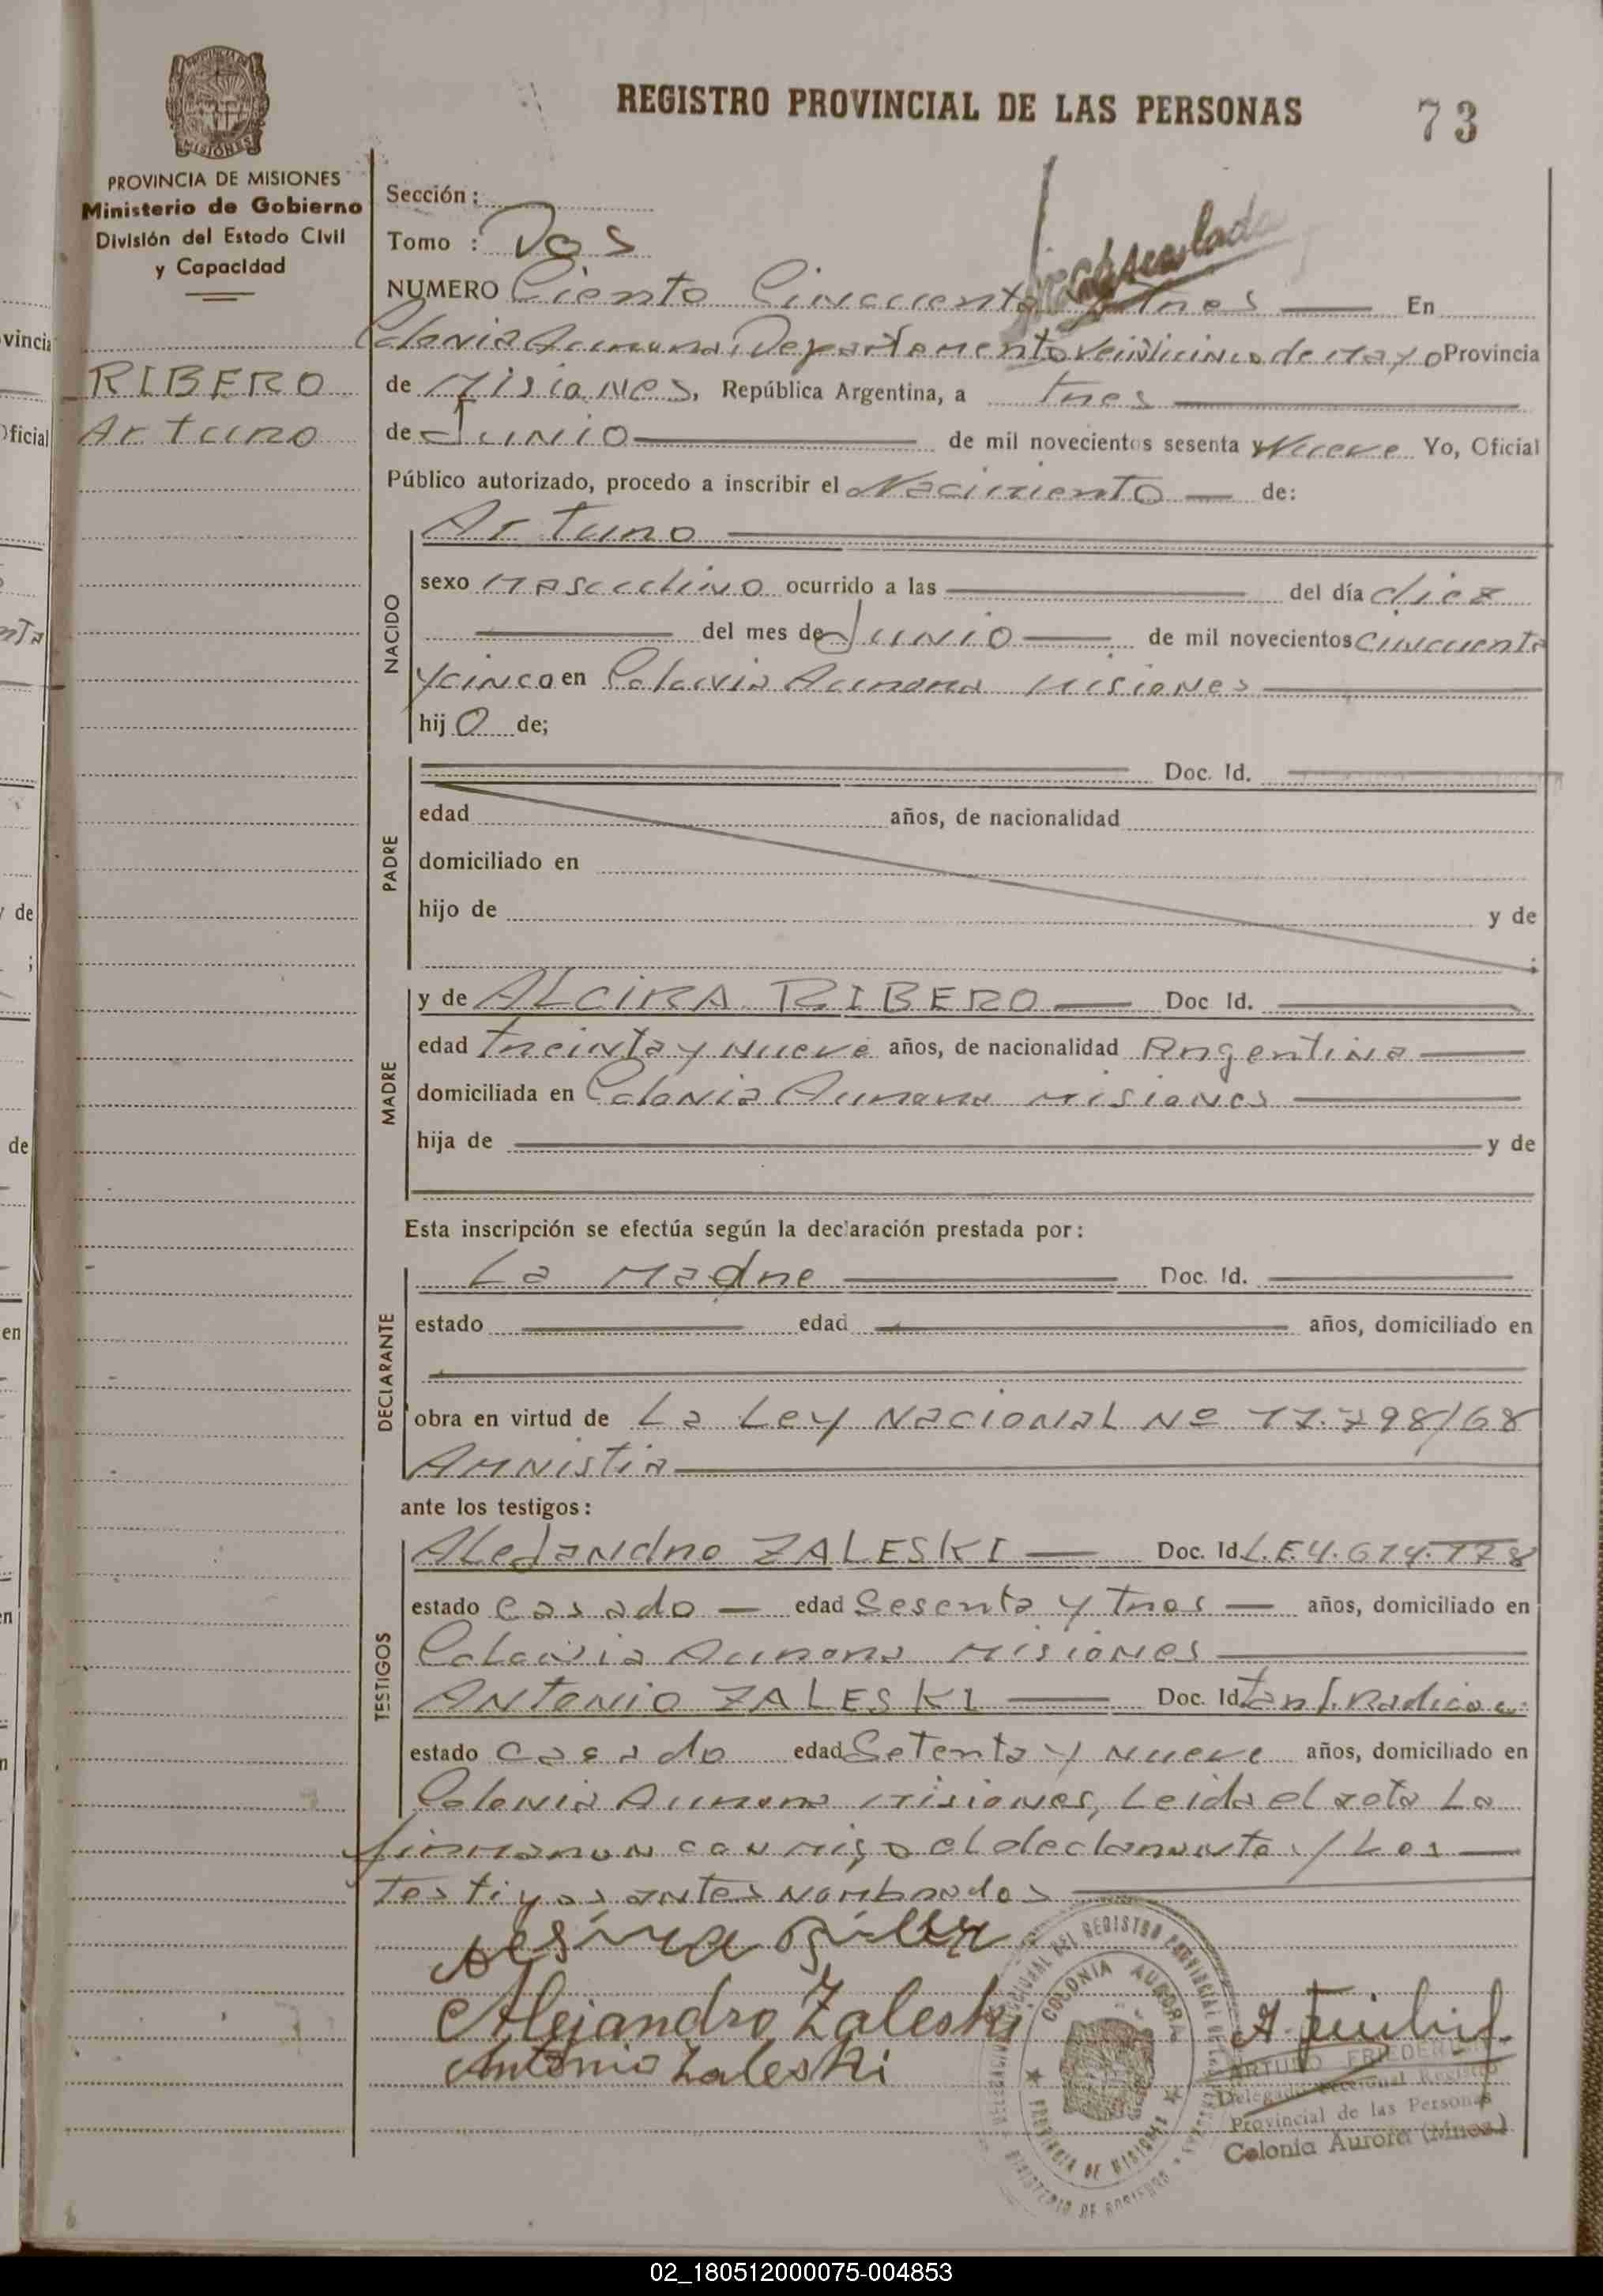 REGISTRO PROVINCIAL DE LAS PERSONAS
73
PROVINCIA DE MISIONES
Ministerio de Gobierno
División del Estado Civil
y Capacidad
RIBERO
Arturo
Sección :
Tomo : Dos
NUMERO Ciento Cincuenta y Tres En
Colonia Aurora, Departamento Veinticinco de Mayo Provincia
de Misiones, República Argentina, a tres
de Junio de mil novecientos sesenta y Nueve Yo, Oficial
Público autorizado, procedo a inscribir el Nacimiento de:
NACIDO
Arturo
sexo Masculino ocurrido a las del día diez
del mes de Junio de mil novecientos cincuenta
y cinco en Colonia Aurora Misiones
hijo de;
PADRE
Doc. Id.
edad años, de nacionalidad
domiciliado en
hijo de y de
MADRE
y de ALCIRA RIBERO Doc Id.
edad treinta y nueve años, de nacionalidad Argentina
domiciliada en Colonia Aurora Misiones
hija de y de
Esta inscripción se efectúa según la declaración prestada por:
DECLARANTE
La Madre Doc. Id.
estado edad años, domiciliado en
obra en virtud de La Ley Nacional Nº 17.798/68
Amnistia
ante los testigos:
TESTIGOS
Alejandro ZALESKI Doc. Id. L.E.4.614.178
estado Casado edad Sesenta y Tres años, domiciliado en
Colonia Aurora Misiones
Antonio ZALESKI Doc. Id
estado casado edad Setenta y Nueve años, domiciliado en
Colonia Aurora Misiones, Leida el acta La
firmaron conmigo el declarante y Los
Testigos antes Nombrados
Alejandro Zaleski
Antonio Zaleski
COLONIA AURORA
PROVINCIA DE MISIONES
MINISTERIO DE GOBIERNO
ARTURO
Delegado Seccional Registro
Provincial de las Personas
Colonia Aurora (Mnes.)
02_180512000075-004853